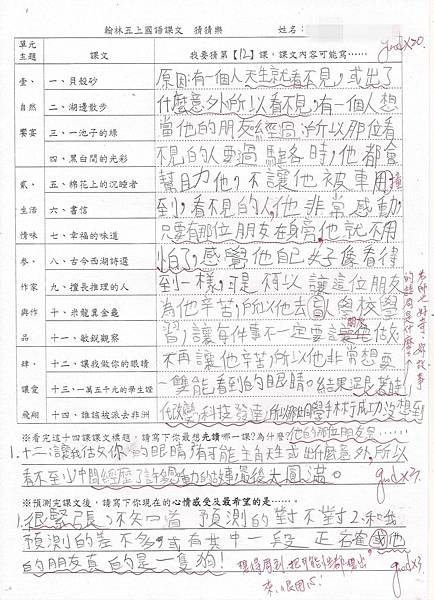 翰林五上國語課文　猜猜樂　姓名：
單元主題　課文　我要猜第【12】課，課文內容可能寫……
good x20.
壹、　一、貝殼砂　原因：有一個人天生就看不見，或出了
自然　二、湖邊散步　什麼意外，所以看不見，有一個人想
饗宴　三、一池子的綠　當他的朋友經過，所以那位看
四、黑白間的光彩　不見的人要過馬路時，他都會
貳、　五、棉花上的沉睡者　幫助他，不讓他被車撞
生活　六、書信　到，看不見的人，他非常感動
情味　七、幸福的味道　只要有那位朋友在身旁，他就不用
參、　八、古今西湖詩選　怕了，感覺他自己好像看得
作家　九、擅長推理的人　到一樣，可是不可以讓這位朋友
與作　十、米龍真金龜　為他辛苦，所以他去學校學
品　十一、敏銳觀察　習，讓每件事不一定要讓朋友做
肆、　十二、讓我做你的眼睛　不再讓他辛苦，所以他非常想要
讓愛　十三、一萬五千元的學生證　一雙能看到的眼睛。結果
飛翔　十四、誰該被派去非洲　科技發達，所以手術成功，沒想到
※看完這十四課課文標題，請寫下你最想先讀哪一課？為什麼？他的那位朋友是……
1.十二、讓我做你的眼睛，有可能主角天生或出什麼意外，所以
看不到，中間經歷了許多感動的故事，最後大團圓滿。
good x2.
※預測完課文後，請寫下你現在的心情感受及最希望的是……。
1.很緊張，不知道預測的對不對 2.和我
預測的差不多，或有其中一段正確
的朋友真的是一隻狗！
good x3